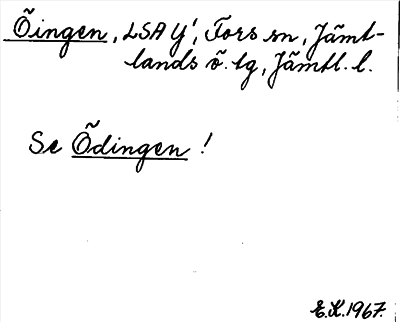 Õingen, LSA Y', Fors sn, Jämt-
lands ö. tg, Jämtl. l.
Se Õdingen!
E.K. 1967.